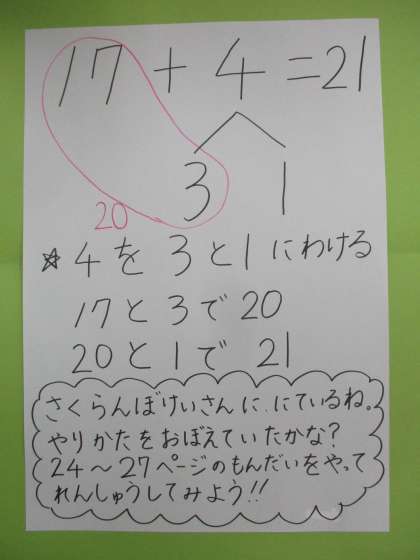 17 + 4 = 21
3 1
20
☆ 4を3と1にわける
17と3で20
20と1で21
さくらんぼけいさんに、にているね。
やりかたをおぼえていたかな?
24～27ページのもんだいをやって
れんしゅうしてみよう!!